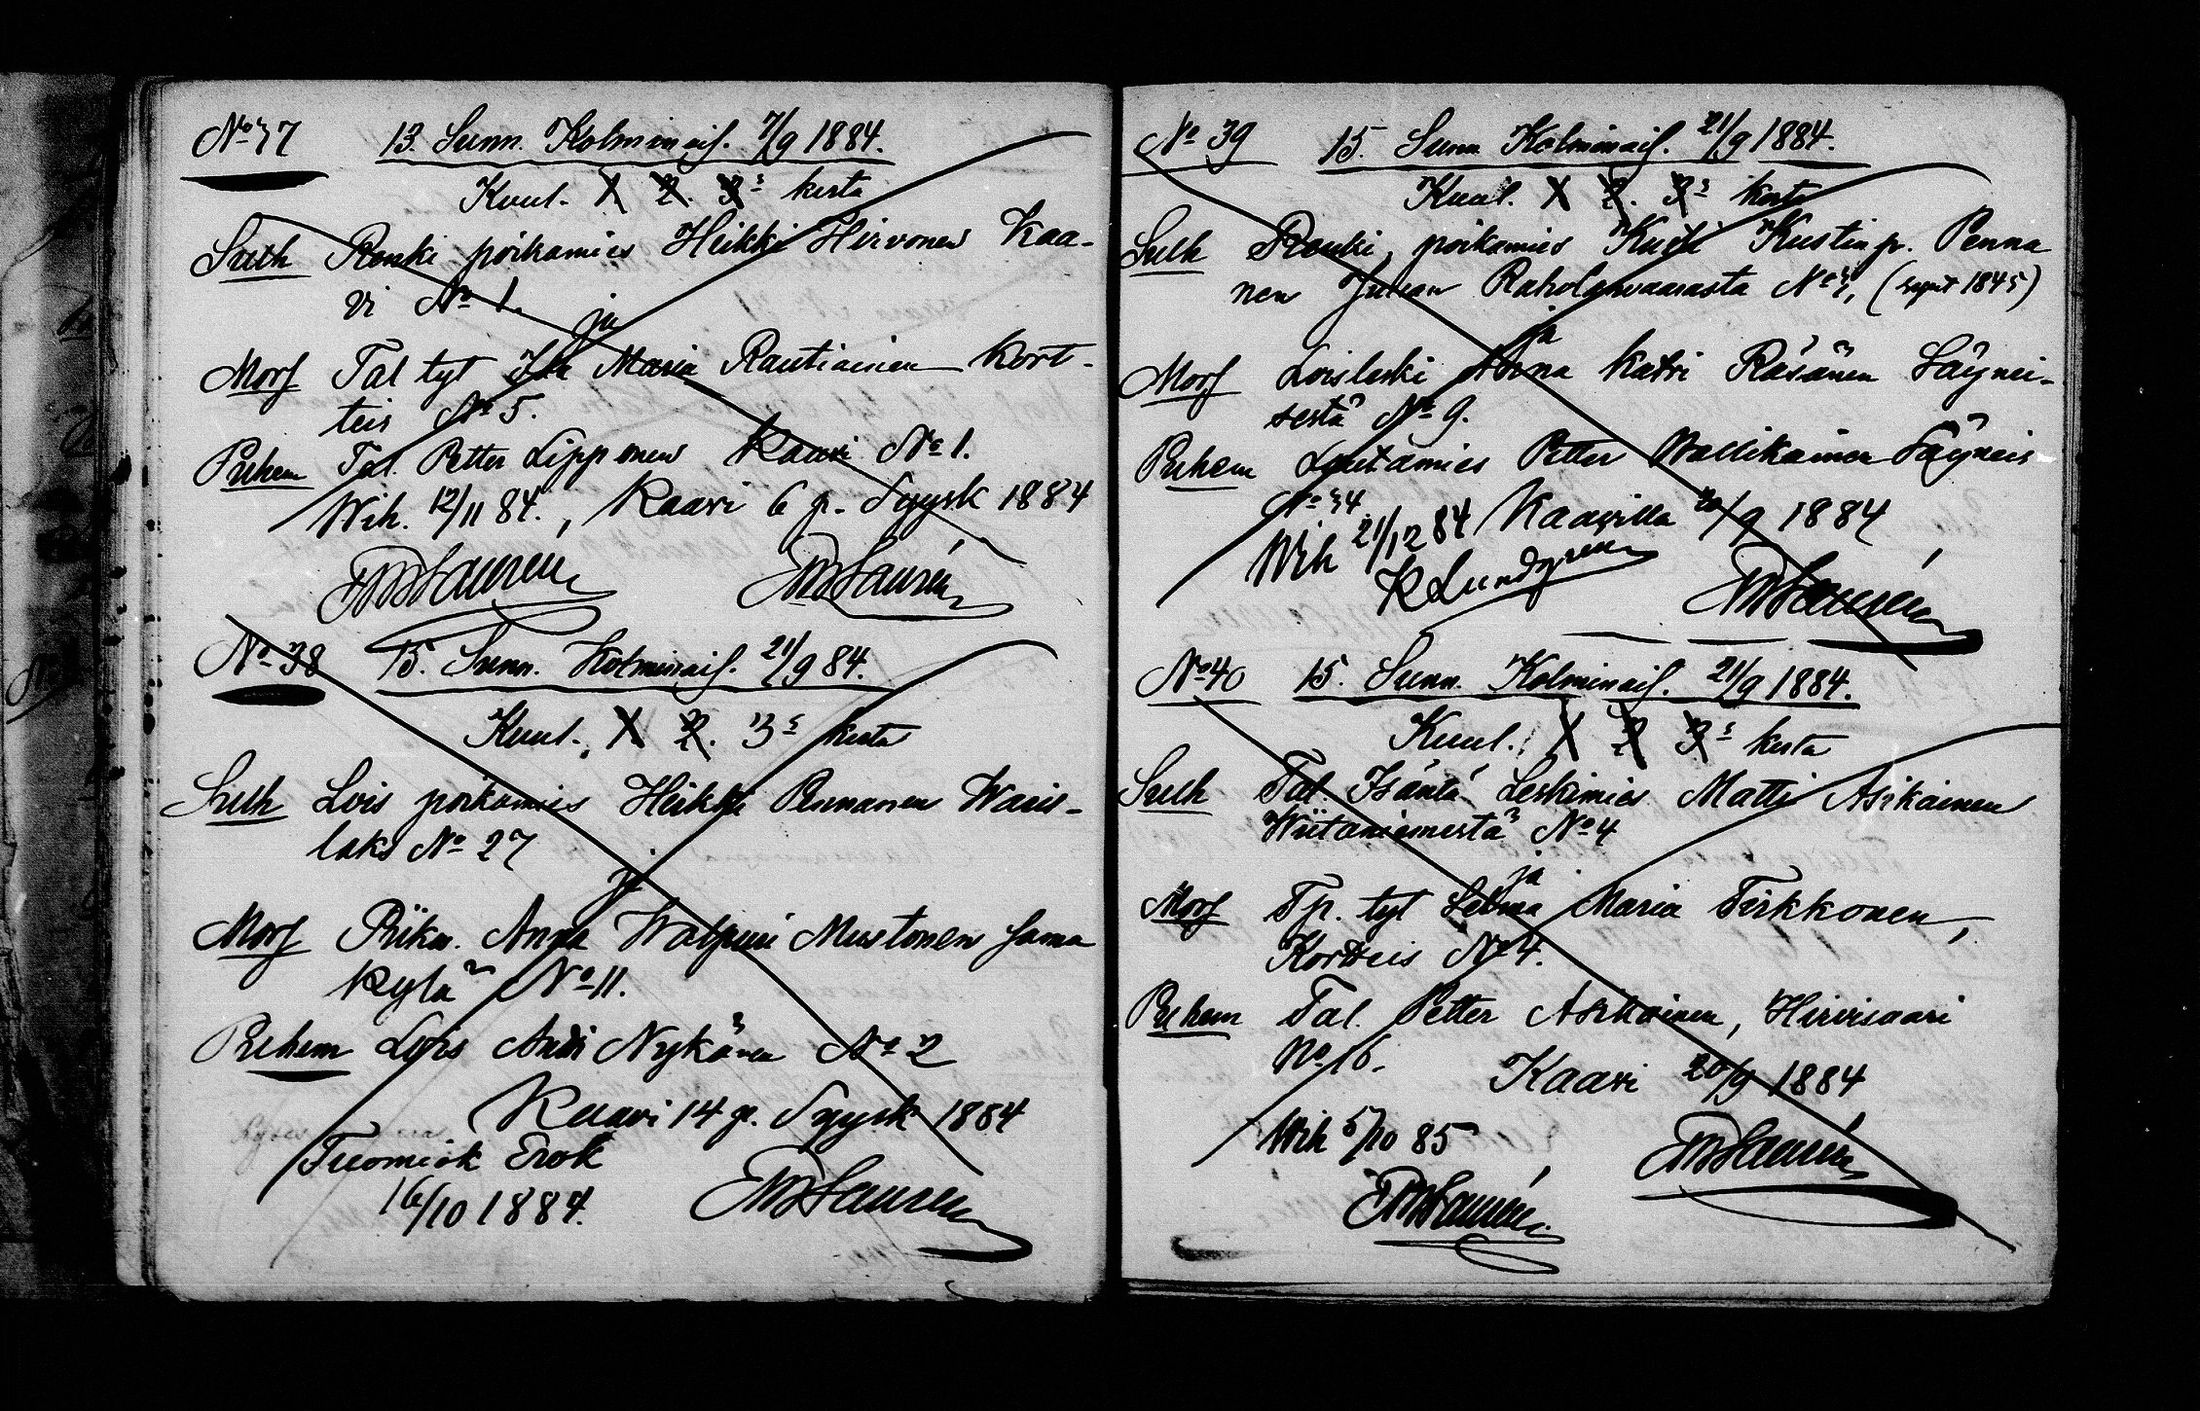 No 37 13. Sunn. Kolminais. 7/9 1884.
Kuul. 1 2. 3s kerta
Sulh Renki poikamies Heikki Hirvonen Kaa-
vi No 1.
ja
Mors Tal tyt Ida Maria Rautiainen Kort-
teis No 5.
Puhem Tal. Petter Lipponen Kaavi No 1.
Wih. 12/11 84., Kaavi 6 p. Syysk 1884
No 38 15. Sunn. Kolminais. 21/9 84.
Kuul. 1 2. 3s kerta
Sulh Lois poikamies Heikki Pennanen Wariis-
laks No 27
ja
Mors Piika. Anna Walpuri Mustonen Sama
kylä No 11.
Puhem Lois Antti Nykänen No 2
Kaavi 14 p. Syysk 1884
Tuomiok Erok
16/10 1884.
No 39 15. Sunn Kolminais. 21/9 1884.
Kuul. 1 2. 3s kerta
Sulh Renki, poikamies Kusti Kustinp. Penna
nen Juuan (synt 1845)
ja
Mors Loisleski Anna Katri Räsänen Säynei-
sestä No 9.
Puhem Lautamies Petter Wallikainen Säyneis
No 34.
Wih 21/12 84 Kaavilla 20/9 1884
K Lundgren
No 40 15. Sunn. Kolminais. 21/9 1884.
Kuul. 1 2 3s kerta
Sulh Tal. Isäntä Leskimies Matti Asikainen
Wiitaniemestä No 4
ja
Mors Tp. tyt Selma Maria Tirkkonen,
Kortteis No 4.
Puhem Tal. Petter Asikainen, Hirvisaari
No 16.
Kaavi 20/9 1884
Wih 5/10 85